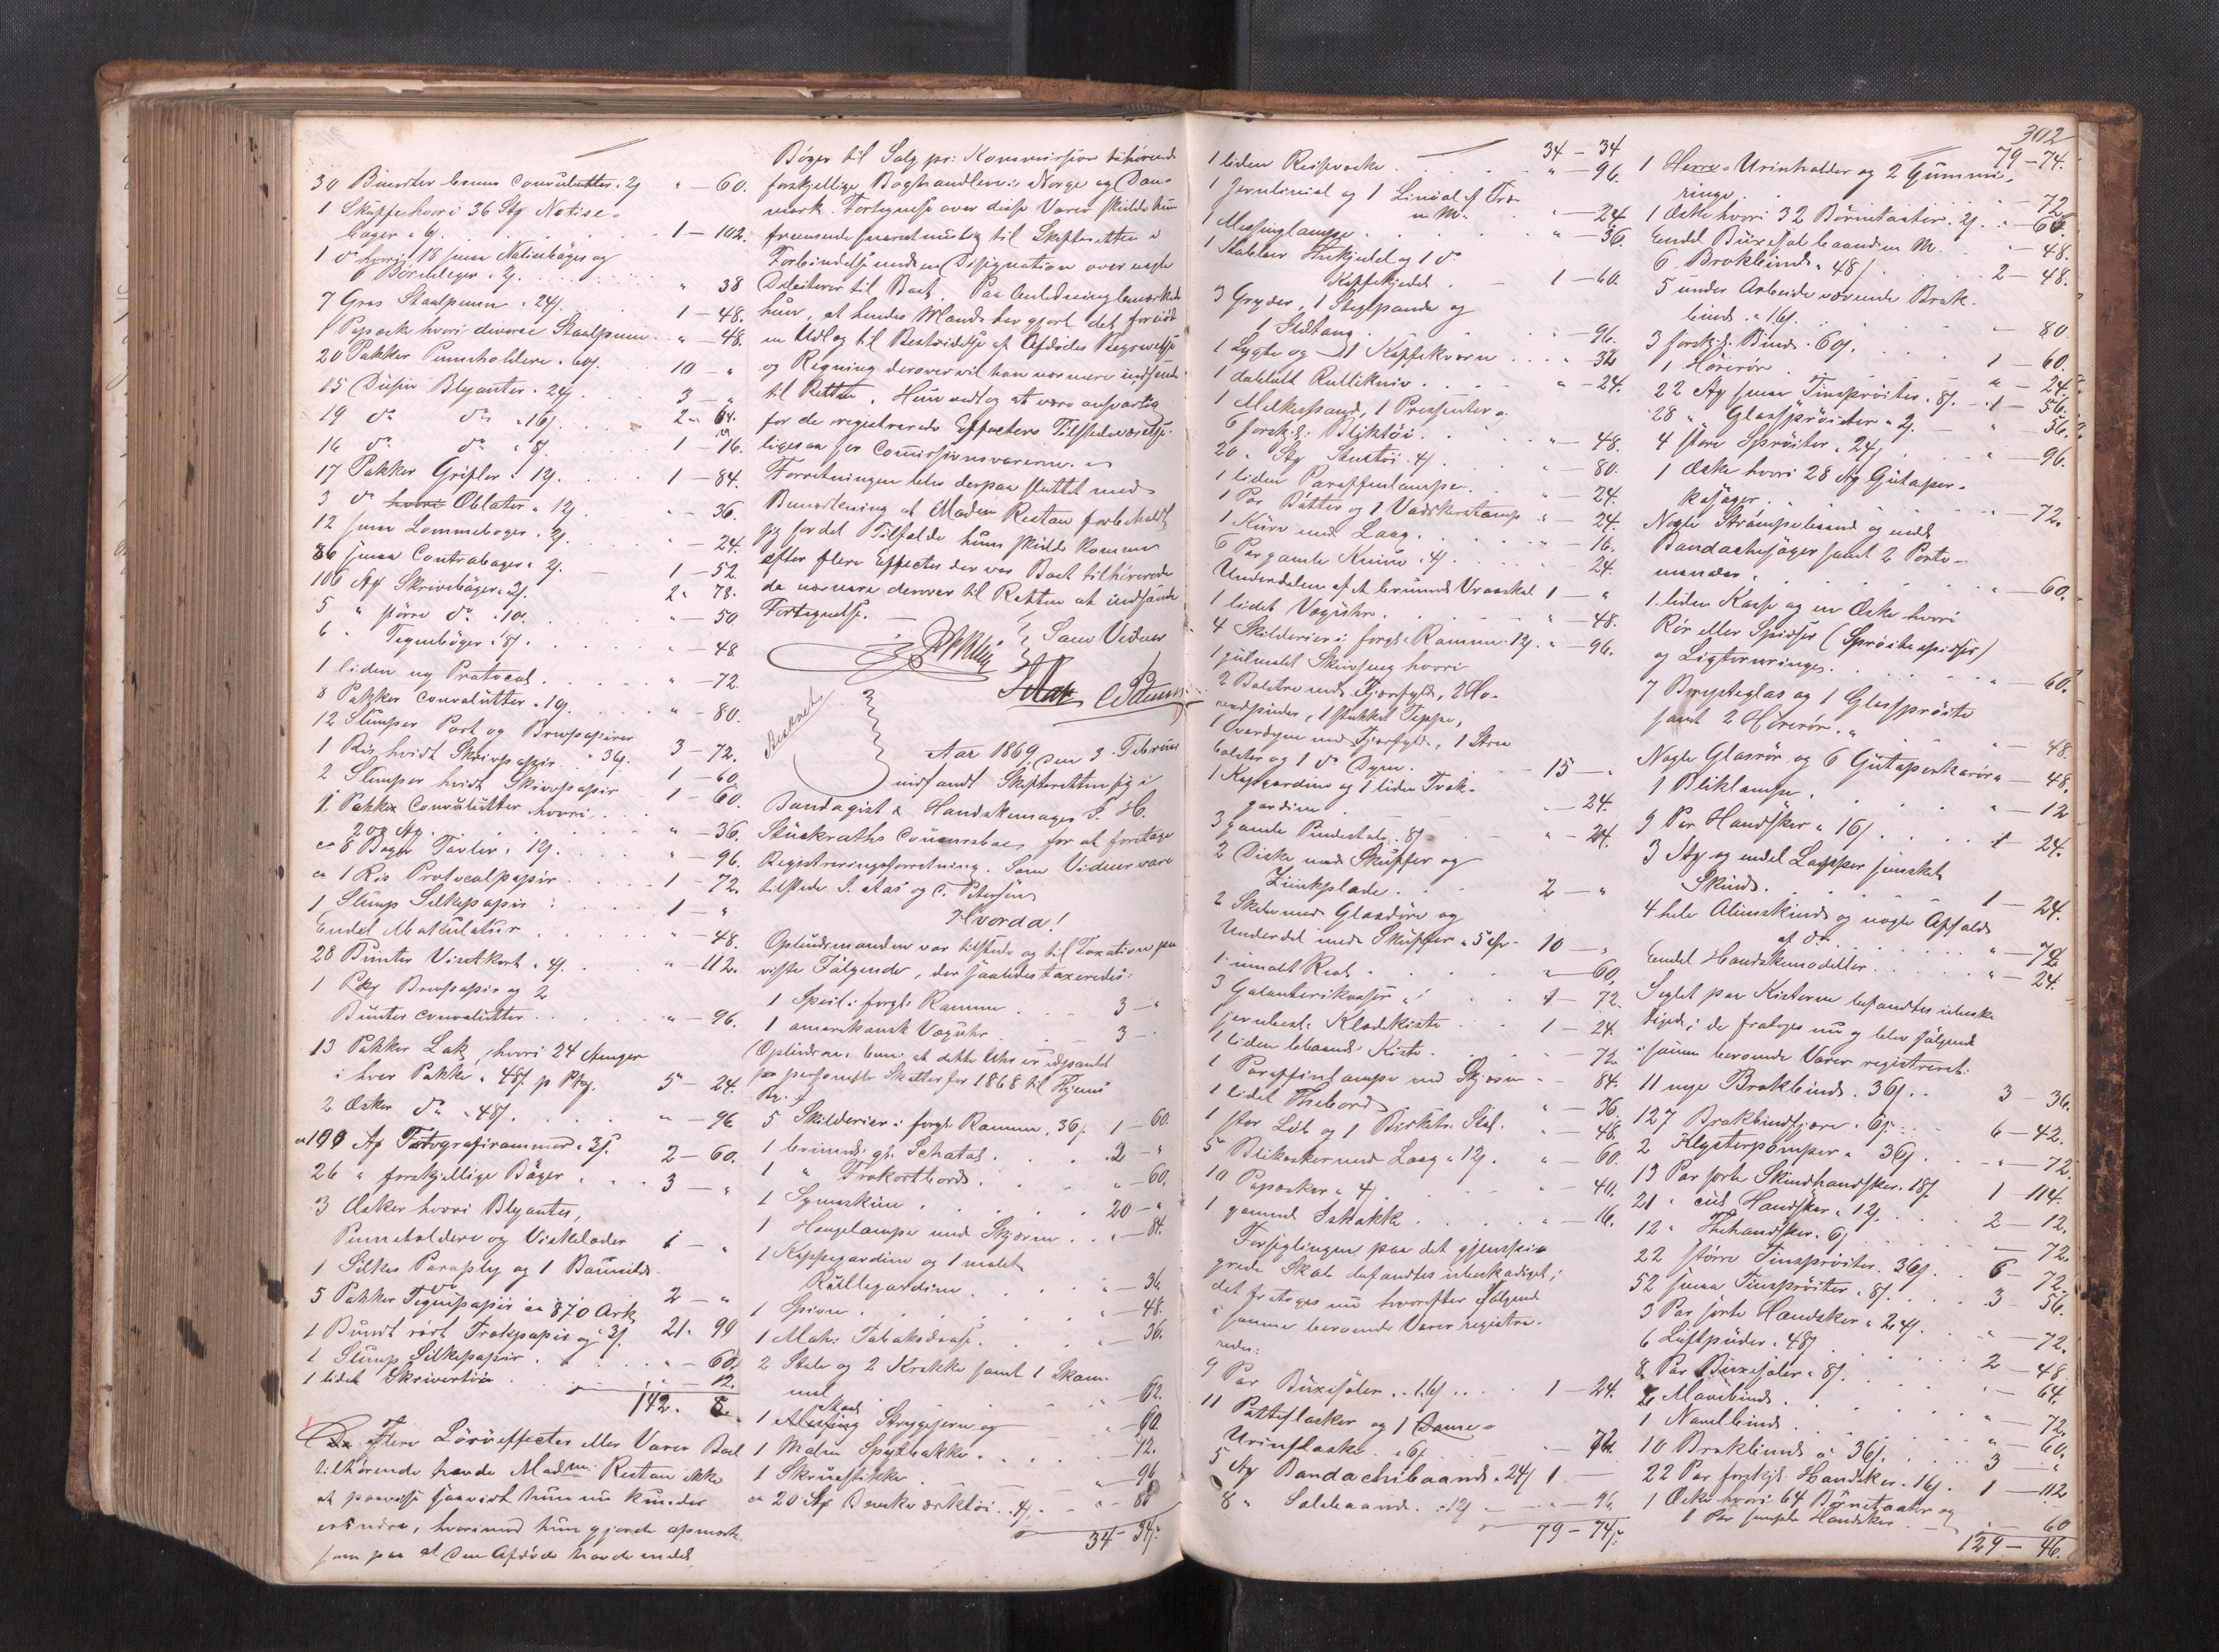 30 Bunter brune Convolutter. 2ß " — 60.
1 Skuffe hvori 36 Stk Notise-
bøger a 6ß. 1 — 102.
1 do hvori 18 smaa Notisebøger og
6 Børnebøger. 2ß. " 38
7 Gros Staalpenne . 24ß. 1 — 48.
1 Papæske hvori diverse Staalpenne " — 48.
20 Pakker Penneholdere . 60ß. 10 — "
15 Dusin Blyanter . 24ß. 3 — "
19 do do . 16ß. 2 — 64.
16 do do " 8ß. 1 — 16.
17 Pakker Grifler . 12ß. 1 — 84.
3 do hvori Oblater . 12ß. " — 36.
12 smaa Lommebøger . 2ß. " — 24.
86 smaa Contrabøger . 2ß. 1 — 52.
106 Stk Skrivebøger . 2ß. 2 " 78.
5 " større do . 10. " — 50
6 " Tegnebøger . 8ß. " — 48.
1 liden ny Protocol " — 72.
8 Pakker Convolutter . 10ß. " — 80.
12 Slumper Post og Brevpapirer
3 — 72.
1 Ris hvidt Skrivpapir . 36ß. 1 — 60.
2 Slumper hvidt Skrivpapir 1 — 60.
1 Pakke Convolutter hvori
200 Stk. " — 36.
ca 8 Bøger Tavler . 12ß. " — 96.
ca 1 Ris Protocolpapir 1 — 72.
1 Slump Silkepapir 1 — "
Endel Makulatur " — 48.
28 Bunter Visitkort . 4ß. " — 112.
1 Pkg Brevpapir og 2
Bunter Convolutter " — 96.
13 Pakker Lak, hvori 24 Stenger
i hver Pakke . 48ß. p Pkg. 5 — 24.
2 Æsker do . 48ß. " — 96
ca 100 Stk Fotografirammer . 2ß. 2 — 60.
26 " forskjellige Bøger 3 — "
3 Æsker hvori Blyanter,
Penneholdere og Viskelæder 1 — "
1 Silkes Paraply og 1 Bomulds
do 2 — "
5 Pakker Tegnepapir ca 870 Ark 21 " 90
1 Bundt rødt Trækpapir og 2ß.
1 Slump Silkepapir " — 60.
1 lidet Skrivertøi " — 12.
142 . 8.
Flere Løsøreeffecter eller Varer Boet
tilhørende havde Madme Restau ikke
at paavise saavidt hun nu kunde
erindre, hvorimod hun gjorde opmærk-
som paa at den Afdøde havde endel
Bøger til Salg pr: Kommission tilhørende
forskjellige Boghandlere i Norge og Dan-
mark. Fortegnelse over disse Varer skulde hun
fremsende snarest mulig til Skifteretten i
Forbindelse med en Designation over nogle
Debitorer til Boet. Paa Anledning bemærkede
hun, at hendes Mand har gjort det fornødne
en Udlæg til Bestridelse af Afdødes Begravelse
og Regning derover vil han nærmere indsende
til Retten. Hun vedtog at være ansvarlig
for de registrerede Effecters Tilstedeværelse
ligesaa for Commissionsvarerne.
Forretningen blev derpaa sluttet med
Bemærkning at Madm Restau forbeholdt
sig for det Tilfælde hun skulde komme
efter flere Effecter der var Boet tilhørende
da nærmere derover til Retten at indsende
Fortegnelse.
Som Vidner
S. Aas C. Petersen
Beskrevet
Aar 1869, den 3 Februar
indfandt Skifteretten sig i
Bandagist & Handskemager F. H.
Stückraths Concursbo, for at foretage
Registreringsforretning. Som Vidner vare
tilstede S. Aas og C. Petersen
Hvorda!
Opbudsmanden var tilstede og til Taxation paa-
viste Følgende, der saaledes taxeredes:
1 Speil i forgt: Ramme 3 — "
1 amerikansk Væguhr 3 — "
(Opbudsm. bem: at dette Uhr er udpantet
for personlig Skatter for 1868 til Hjemst
5 Skilderier i forgt Ramme . 36ß. 1 — 60.
1 brunm: gl. Schatol 2 — "
1 " Frokostbord " — 60.
1 Symaskine 20 — "
1 Hængelampe med Skjærm " — 84.
1 Kappegardin og 1 malet
Rullegardin " — 36
1 Spion " — 48.
1 Mah: Tobaksdaase " — 36.
2 Stole og 2 Krakke samt 1 Skam-
mel " — 62.
1 Messing Strygejern og " — 60.
1 Malm Spyttbakke " — 12.
1 Skruestikke " — 96
ca 20 Stk Bænkeværktøi . 4ß. " — 80
34 — 34ß.
302
34 — 34
1 liden Reisevæske " — 96.
1 Jernlinial og 1 Linial af Træ
m. M. " — 24.
1 Messinglampe " — 36.
1 Kobber Thekjedel og 1 do
Kaffekjedel 1 — 60.
3 Gryder, 1 Stegepande og
1 Ildtang " — 96.
1 Lygte og 1 Kaffekvern " 32
1 dobbelt Rullekniv " — 24.
1 Melkespand, 1 Presenter og
6 forskj: Bliktøi " — 48.
20 " Stk Stentøi . 4ß. " — 80.
1 liden Parafinlampe " — 24.
1 Par Bøtter og 1 Vadskestamp " — 24.
1 Kurv med Laag " — 16.
6 Par gamle Knive . 4ß. " 24.
Underdelen af et brunm: Vraaskab 1 — "
1 lidet Væguhr " — 48.
4 Skilderier i forgt: Ramme . 12ß. " — 96.
1 gulmalt Skuvseng hvori
2 Bolstre med Fjærfyld, 2 Ho-
vedpuder, 1 stukket Teppe,
1 Overdyne med Fjærfyld, 1 Stræ
bolster og 1 do Dyne 15 — "
1 Kappegardin og 1 liden Træk-
gardin " — 24.
3 gamle Pindestole . 8ß. " — 24.
2 Diske med Skuffer og
Zinkplade 2 — "
2 Skabe med Glasdøre og
Underdel med Skuffer . 5 Spd. 10 — "
1 umalt Reol " — 60.
3 Galanterikasser . 1 — 72.
jernbesl: Klædekiste 1 — 24.
1 liden bbaand: Kiste " — 72
1 Paraffinlampe med Skjærm " — 84.
1 lidet Thebord " — 36.
1 stor Løib og 1 Birketr. Stol " — 48.
5 Blikæsker med Laag . 12ß. " — 60.
10 Papæsker . 4ß. " — 40.
1 gammel Schakk " — 16.
Forseglingen paa det gjensvis-
grede Skab befandtes ubeskadiget;
det fratoges nu hvorefter følgende
i samme beroende Varer registre-
redes:
9 Par Buxeseler . 16ß. 1 — 24.
11 Patteflasker og 1 Dame-
Urinflaske . 6ß. " — 72.
5 Stk Bandachebaand . 24ß. 1 —
8 " Solebaand . 12ß. " — 96
79 — 74ß.
79 — 74.
1 Herre-Urinholder og 2 Gummi-
ringe " — 72.
1 Æske hvori 32 Børnetaater . 2ß. " — 66.
Endel Buxeselebaand m M. " — 48.
6 Brokbind . 48ß. 2 — 48.
5 under Arbeide værende Brok-
bind . 16ß. " — 80.
3 forskj: Bind . 60ß. 1 — 60.
1 Hørerør " — 24.
22 Stk smaa Tinsprøiter . 8ß. 1 — 56.
28 " Glassprøiter . 2ß. " 56.
4 store Sprøiter . 24ß. " — 96.
1 Æske hvori 28 Stk Gutaper-
kasager " — 72.
Nogle Strømpebaand og endel
Bandachesager samt 2 Porte-
monæer " — 60.
1 liden Kasse og en Æske hvori
Rør eller Spidser (Sprøitespidser)
og Ligtornringe " — 60.
7 Brysteglas og 1 Glassprøite
samt 2 Hørerør " — 48.
Nogle Glasrør og 6 Gutaperkarør " — 48.
1 Bliklampe " 12
9 Par Handsker . 16ß. 1 24.
3 Stk og endel Lapper semsket
Skind 1 — 24.
4 hele Alunskind og nogle Affald
af do " — 72.
Endel Handskemodeller " — 24.
Seglet paa Kisterne befandtes ubeska-
diget; de fratoges nu og blev følgende
i samme beroende Varer registreret:
11 nye Brokbind . 36ß. 3 — 36.
127 Brokbindfjære . 6ß. 6 — 42.
2 Klysterpomper . 36ß. " — 72.
13 Par sorte Skindhandsker . 18ß. 1 — 114.
21 " cul: Handsker . 12ß. 2 — 12.
12 " Thehandsker . 6ß. — 72.
22 større Tinsprøiter . 36ß. 6 — 72.
52 smaa Tinsprøiter . 8ß. 3 — 56.
3 Par sorte Handsker . 24ß. " — 72.
6 Luftpuder . 48ß. 2 — 48.
8 Par Buxeseler . 8ß. " — 64.
2 Mavebind " 72.
1 Navlebind " — 60.
10 Brokbind a 36ß. 3 — "
22 Par forskj: Handsker . 16ß. 1 — 112
1 Æske hvori 64 Børnetaater og
1 Par simple Handsker " — 60
129 — 46.